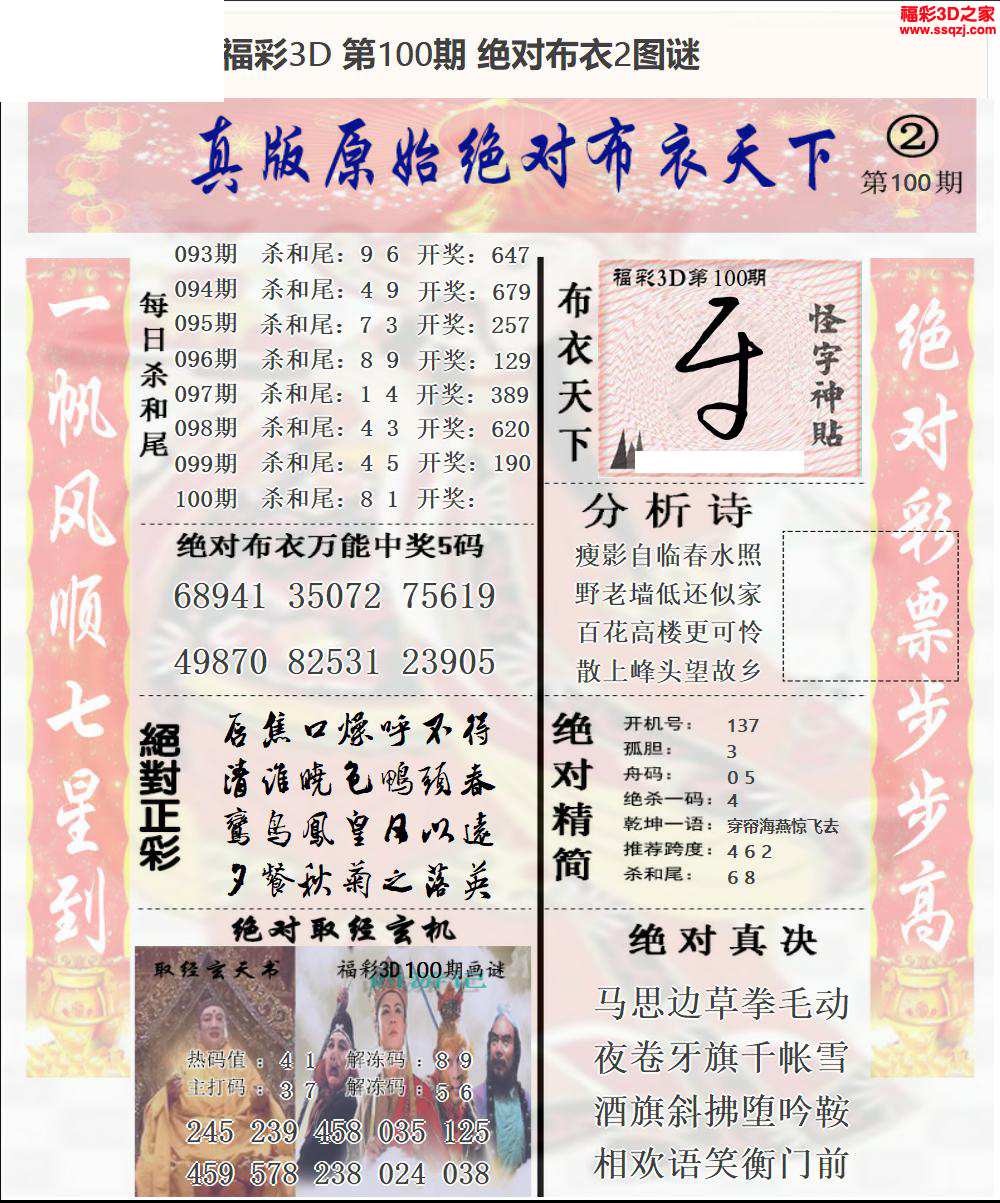 福彩3D之家
www.ssqzj.com
福彩3D 第100期 绝对布衣2图谜
真版原始绝对布衣天下
②
第100期
一帆风顺七星到
每日杀和尾
093期 杀和尾：9 6 开奖：647
094期 杀和尾：4 9 开奖：679
095期 杀和尾：7 3 开奖：257
096期 杀和尾：8 9 开奖：129
097期 杀和尾：1 4 开奖：389
098期 杀和尾：4 3 开奖：620
099期 杀和尾：4 5 开奖：190
100期 杀和尾：8 1 开奖：
绝对布衣万能中奖5码
68941 35072 75619
49870 82531 23905
絕對正彩
唇焦口燥呼不得
清淮晓色鸭頭春
鸞鸟鳳皇日以遠
夕餐秋菊之落英
绝对取经玄机
取经玄天书
福彩3D100期画谜
热码值：4 1 解冻码：8 9
主打码：3 7 解冻码：5 6
245 239 458 035 125
459 578 238 024 038
布衣天下
福彩3D第100期
怪字神貼
分析诗
瘦影自临春水照
野老墙低还似家
百花高楼更可怜
散上峰头望故乡
绝对精简
开机号：137
孤胆：3
舟码：0 5
绝杀一码：4
乾坤一语：穿帘海燕惊飞去
推荐跨度：4 6 2
杀和尾：6 8
绝对真决
马思边草拳毛动
夜卷牙旗千帐雪
酒旗斜拂堕吟鞍
相欢语笑衡门前
绝对彩票步步高